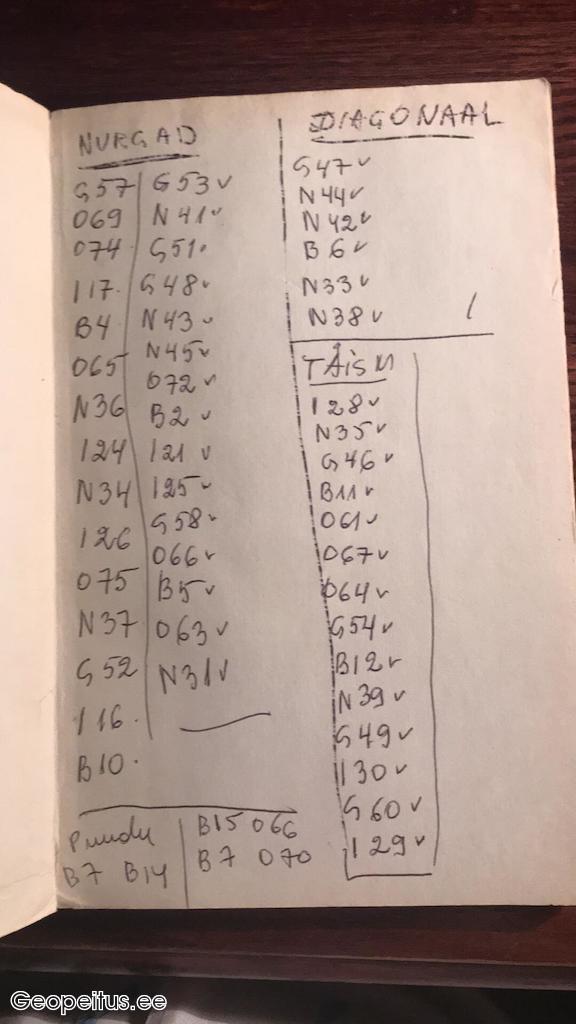 NURGAD
G57
O69
O74
I17.
B4
O65
N36
I24
N34
I26
O75
N37
G52
I16
B10.
G53✓
N41✓
G51.
G48✓
N43✓
N45✓
O72✓
B2✓
I21✓
I25✓
G58✓
O66✓
B5✓
O63✓
N31✓
DIAGONAAL
G47✓
N44✓
N42✓
B6✓
N33✓
N38✓
TÄISM
I28✓
N35✓
G46✓
B11✓
O61✓
O67✓
O64✓
G54✓
B12✓
N39✓
G49✓
I30✓
G60✓
I29✓
B7 B14
B15 O66
B7 O70
Geopeitus.ee